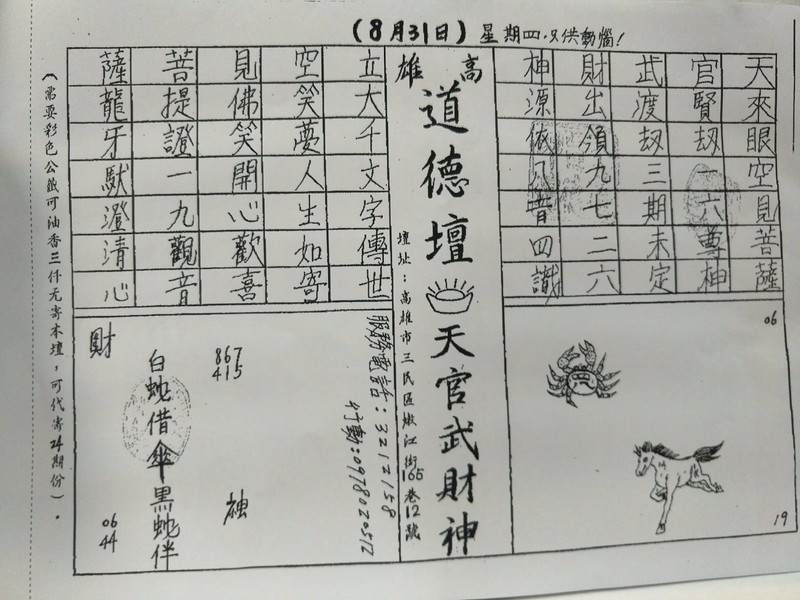 (8月31日) 星期四.只供動腦!
天來眼空見菩薩
官賢劫一六尊神
武渡劫三期未定
財出領九七二六
神源依八普四識
06
19
高雄
道德壇
天官武財神
壇址：高雄市三民區嫩江街165巷12號
服務電話：3212158
行動：0978020512
立大千文字傳世
空笑夢人生如寄
見佛笑開心歡喜
菩提證一九觀音
薩龍牙獻澄清心
867
415
白蛇借傘黑蛇伴
財
06
44
(需要彩色公籤可油香三仟元寄本壇，可代寄24期份)．